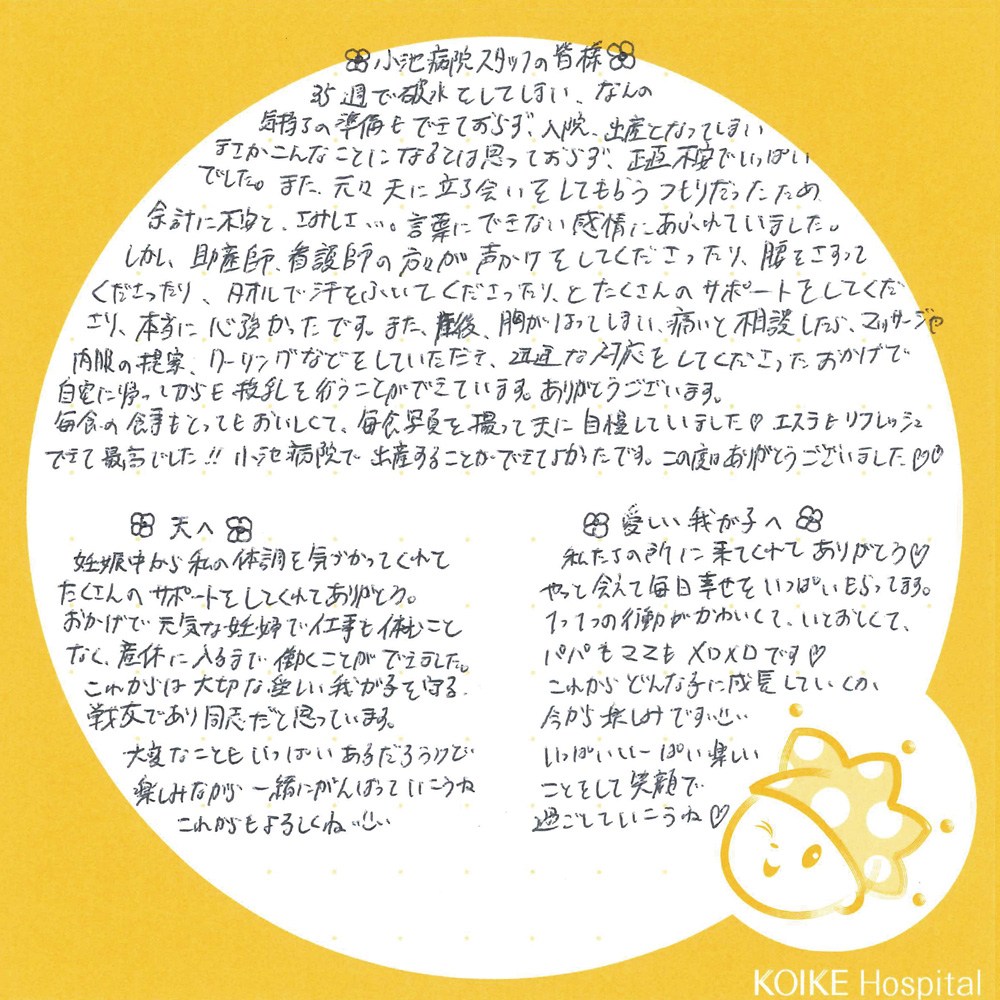 小池病院スタッフの皆様
35週で破水をしてしまい、なんの
気持ちの準備もできておらず、入院、出産となってしまい
まさかこんなことになるとは思っておらず、正直不安でいっぱい
でした。また、元々夫に立ち会いをしてもらうつもりだったため
余計に不安と、さみしさ…。言葉にできない感情にあふれていました。
しかし、助産師、看護師の方々が声かけをしてくださったり、腰をさすって
くださったり、タオルで汗をふいてくださったり、とたくさんのサポートをしてくだ
さり、本当に心強かったです。また、産後、胸がはってしまい、痛いと相談したら、マッサージや
内服の提案、クーリングなどをしていただき、迅速な対応をしてくださったおかげで
自宅に帰ってからも授乳を行うことができています。ありがとうございます。
毎食の食事もとってもおいしくて、毎食写真を撮って夫に自慢していました♡ エステもリフレッシュ
できて最高でした!! 小池病院で出産することができてよかったです。この度はありがとうございました♡♡
夫へ
妊娠中から私の体調を気づかってくれて
たくさんのサポートをしてくれてありがとう。
おかげで元気な妊婦で仕事も休むこと
なく、産休に入るまで働くことができました。
これからは大切な愛しい我が子を守る
戦友であり同志だと思っています。
大変なこともいっぱいあるだろうけど
楽しみながら一緒にがんばっていこうね
これからもよろしくね
愛しい我が子へ
私たちの所に来てくれてありがとう♡
やっと会えて毎日幸せをいっぱいもらってます。
1つ1つの行動がかわいくて、いとおしくて、
パパもママもメロメロです♡
これからどんな子に成長していくのか
今から楽しみです
いっぱいいーっぱい楽しい
ことをして笑顔で
過ごしていこうね♡
KOIKE Hospital